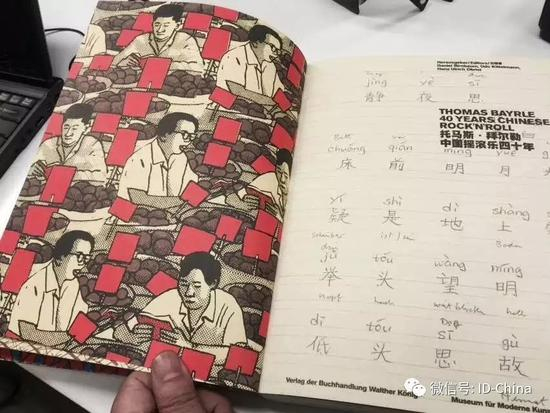 Herausgeber/Editors/出版者
Daniel Birnbaum, Udo Kittelmann,
Hans Ulrich Obrist
jìng yè sī
静 夜 思
THOMAS BAYRLE
40 YEARS CHINESE
ROCK'N'ROLL
托马斯·拜尔勒
中国摇滚乐四十年
Bett
chuáng qián míng yuè
床 前 明 月
yí shì dì shàng
疑 是 地 上
ist
Boden
jǔ tóu wàng míng
举 头 望 明
kopf hoch hell
dī tóu sī gù
低 头 思 故
Verlag der Buchhandlung Walther König
Heimat
Museum für Moderne Kunst
微信号: ID-China